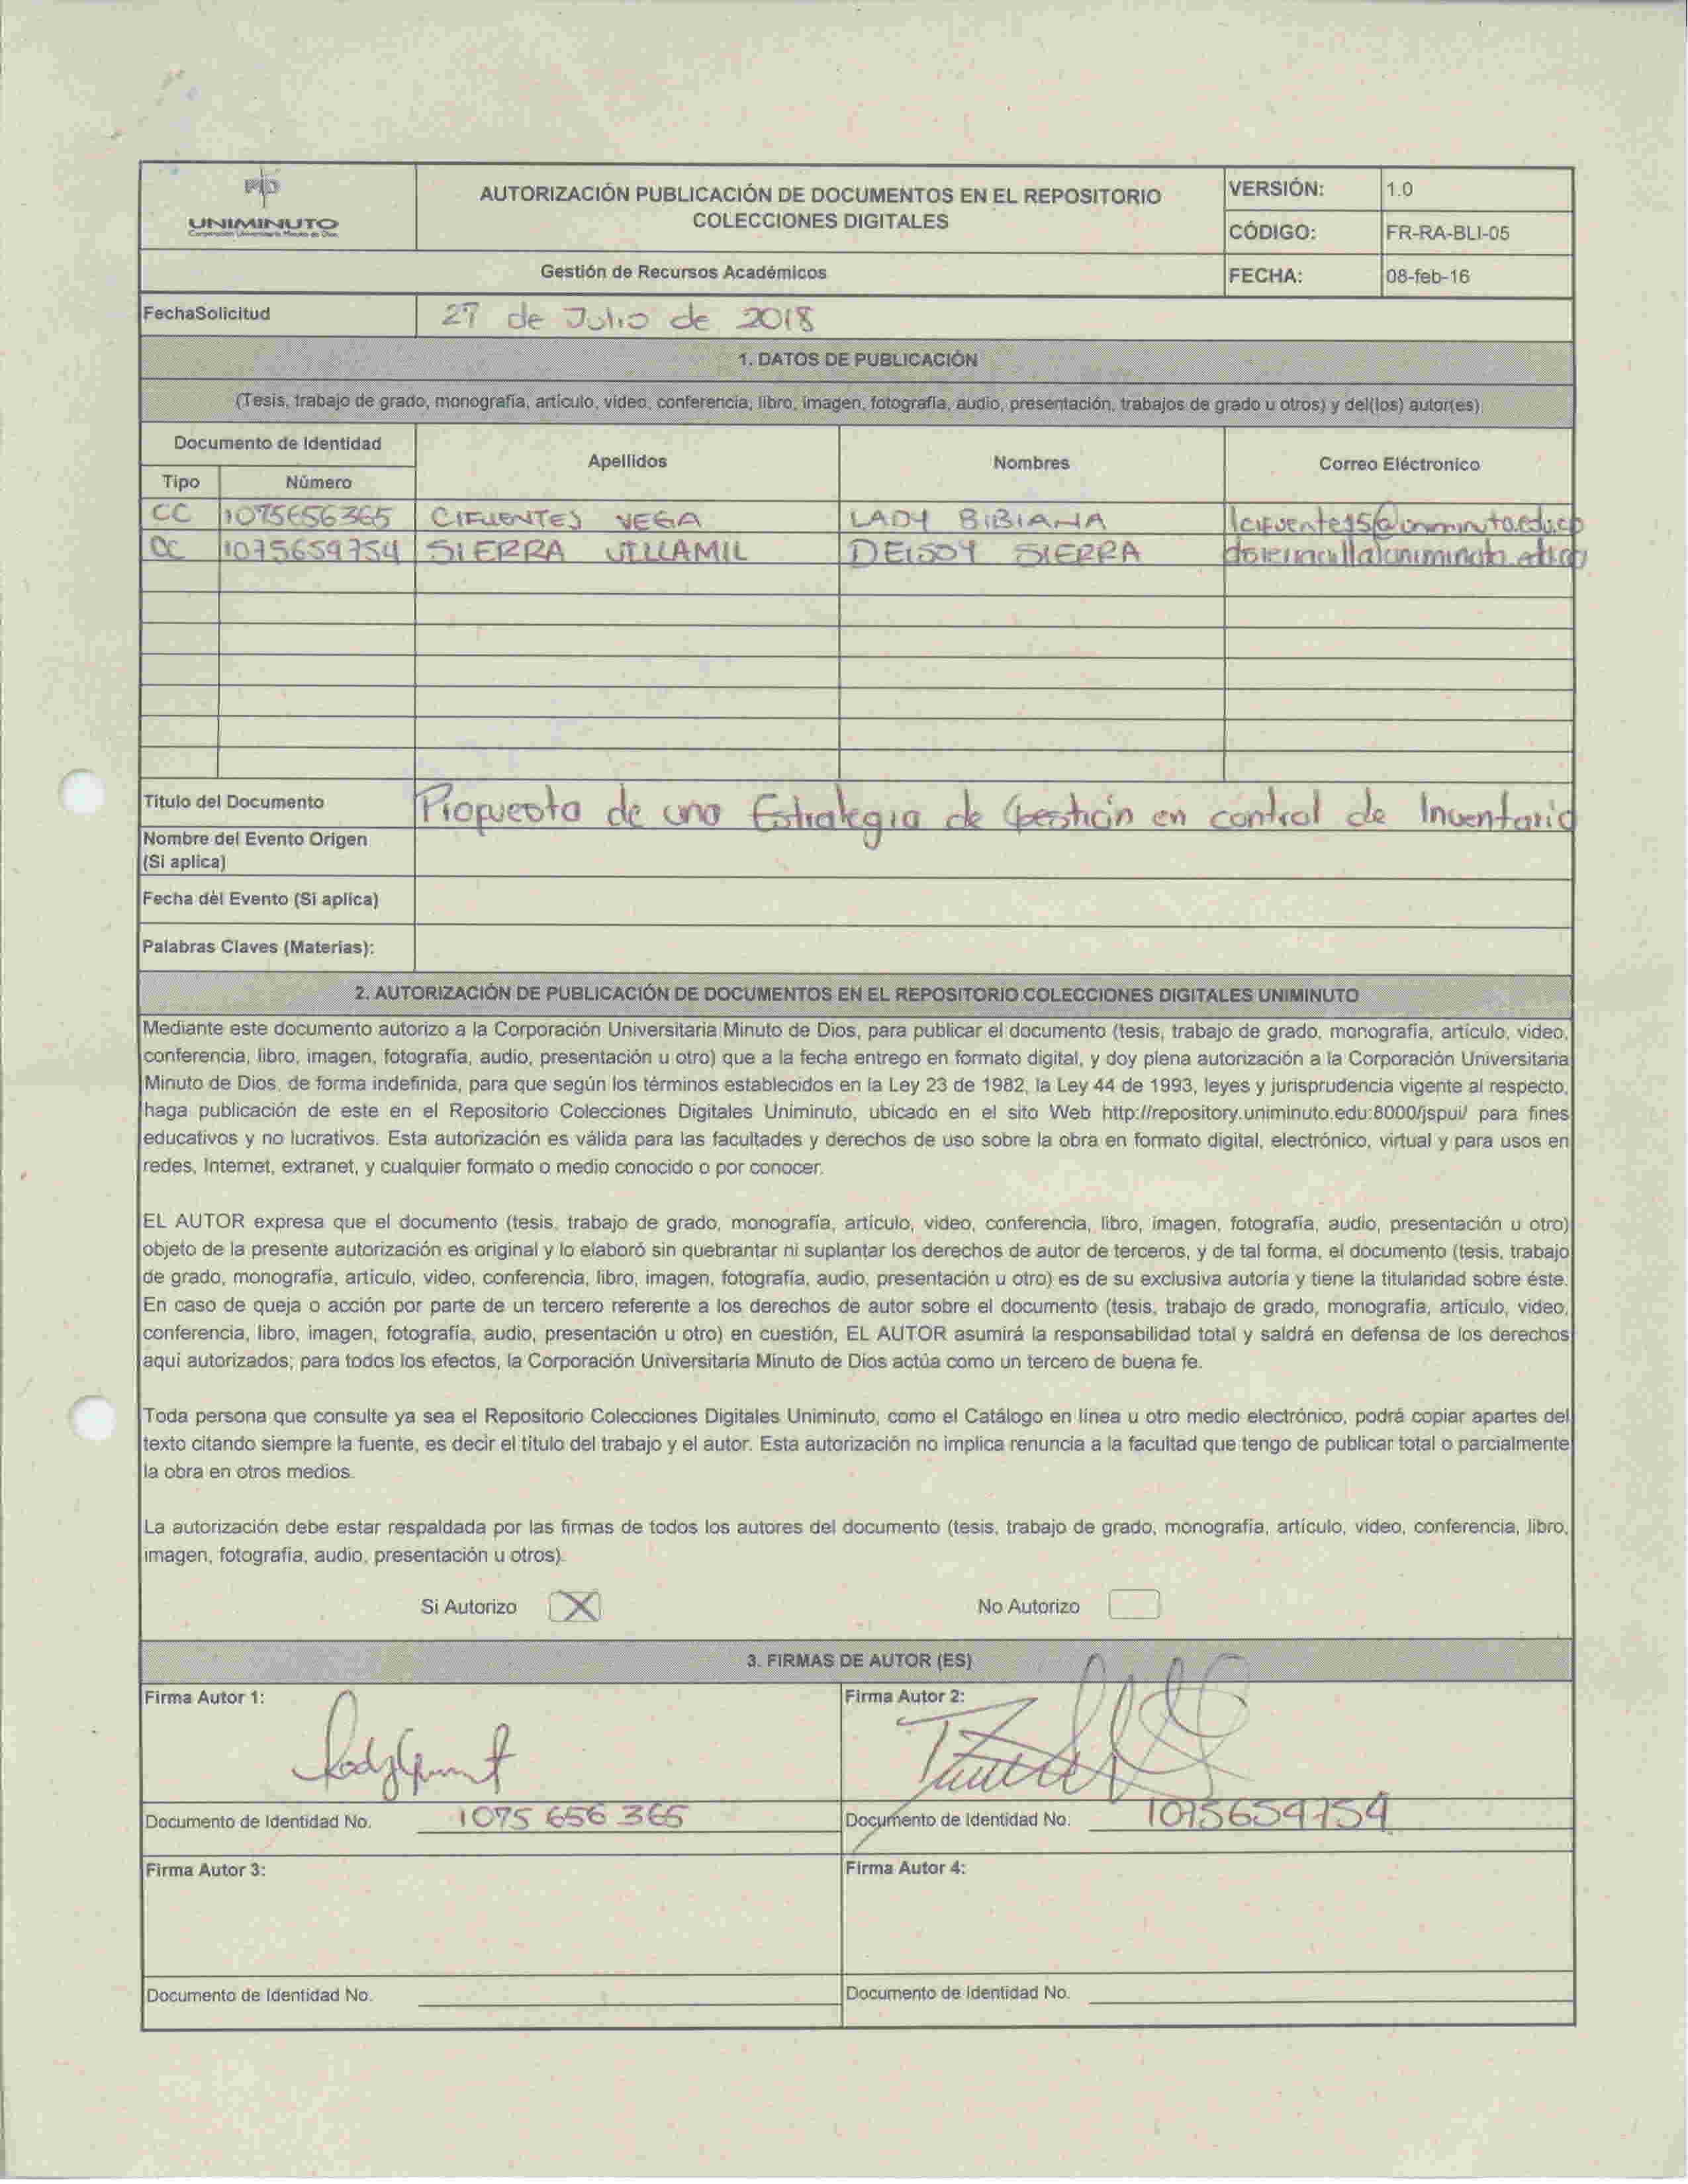 UNIMINUTO
Corporación Universitaria Minuto de Dios
AUTORIZACIÓN PUBLICACIÓN DE DOCUMENTOS EN EL REPOSITORIO
COLECCIONES DIGITALES
VERSIÓN: 1.0
CÓDIGO: FR-RA-BLI-05
Gestión de Recursos Académicos
FECHA: 08-feb-16
FechaSolicitud 27 de Julio de 2018
1. DATOS DE PUBLICACIÓN
(Tesis, trabajo de grado, monografía, artículo, video, conferencia, libro, imagen, fotografía, audio, presentación, trabajos de grado u otros) y del(los) autor(es)
Documento de Identidad
Apellidos Nombres Correo Eléctronico
Tipo Número
CC 1075656365 CIFUENTES VEGA LADY BIBIANA lcifuentes5@uniminuto.edu.co
CC 1075659754 SIERRA VILLAMIL DEISSY SIERRA
Titulo del Documento Propuesta de una Estrategia de Gestión en control de Inventario
Nombre del Evento Origen
(Si aplica)
Fecha del Evento (Si aplica)
Palabras Claves (Materias):
2. AUTORIZACIÓN DE PUBLICACIÓN DE DOCUMENTOS EN EL REPOSITORIO COLECCIONES DIGITALES UNIMINUTO
Mediante este documento autorizo a la Corporación Universitaria Minuto de Dios, para publicar el documento (tesis, trabajo de grado, monografía, artículo, video,
conferencia, libro, imagen, fotografía, audio, presentación u otro) que a la fecha entrego en formato digital, y doy plena autorización a la Corporación Universitaria
Minuto de Dios, de forma indefinida, para que según los términos establecidos en la Ley 23 de 1982, la Ley 44 de 1993, leyes y jurisprudencia vigente al respecto,
haga publicación de este en el Repositorio Colecciones Digitales Uniminuto, ubicado en el sito Web http://repository.uniminuto.edu:8000/jspui/ para fines
educativos y no lucrativos. Esta autorización es válida para las facultades y derechos de uso sobre la obra en formato digital, electrónico, virtual y para usos en
redes, Internet, extranet, y cualquier formato o medio conocido o por conocer.
EL AUTOR expresa que el documento (tesis, trabajo de grado, monografía, artículo, video, conferencia, libro, imagen, fotografía, audio, presentación u otro)
objeto de la presente autorización es original y lo elaboró sin quebrantar ni suplantar los derechos de autor de terceros, y de tal forma, el documento (tesis, trabajo
de grado, monografía, artículo, video, conferencia, libro, imagen, fotografía, audio, presentación u otro) es de su exclusiva autoría y tiene la titularidad sobre éste.
En caso de queja o acción por parte de un tercero referente a los derechos de autor sobre el documento (tesis, trabajo de grado, monografía, artículo, video,
conferencia, libro, imagen, fotografía, audio, presentación u otro) en cuestión, EL AUTOR asumirá la responsabilidad total y saldrá en defensa de los derechos
aquí autorizados; para todos los efectos, la Corporación Universitaria Minuto de Dios actúa como un tercero de buena fe.
Toda persona que consulte ya sea el Repositorio Colecciones Digitales Uniminuto, como el Catálogo en línea u otro medio electrónico, podrá copiar apartes del
texto citando siempre la fuente, es decir el título del trabajo y el autor. Esta autorización no implica renuncia a la facultad que tengo de publicar total o parcialmente
la obra en otros medios.
La autorización debe estar respaldada por las firmas de todos los autores del documento (tesis, trabajo de grado, monografía, artículo, video, conferencia, libro,
imagen, fotografía, audio, presentación u otros).
Si Autorizo X No Autorizo
3. FIRMAS DE AUTOR (ES)
Firma Autor 1: Firma Autor 2:
Documento de Identidad No. 1075 656 365 Documento de Identidad No. 1075659754
Firma Autor 3: Firma Autor 4:
Documento de Identidad No. Documento de Identidad No.